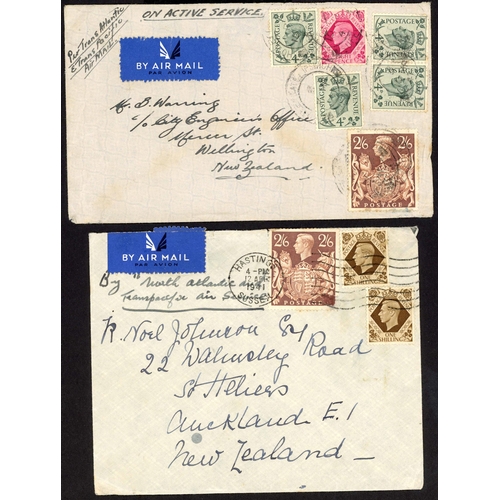 ON ACTIVE SERVICE.
Per Trans Atlantic
& Trans Pacific
Air Mail
BY AIR MAIL
PAR AVION
POSTAGE REVENUE
4D
POSTAGE REVENUE
4D
POSTAGE REVENUE
4D
POSTAGE REVENUE
4D
2/6 2/6
POSTAGE
Mr. B. Waring
c/o City Engineer's Office
Mercer St.
Wellington
New Zealand.
BY AIR MAIL
PAR AVION
By North Atlantic
Transpacific air
HASTINGS
4 - PM
1941
SUSSEX
2/6 2/6
POSTAGE
ONE
SHILLING
Noel Johnson Esq
22 Walmsley Road
St Heliers
Auckland E.1
New Zealand